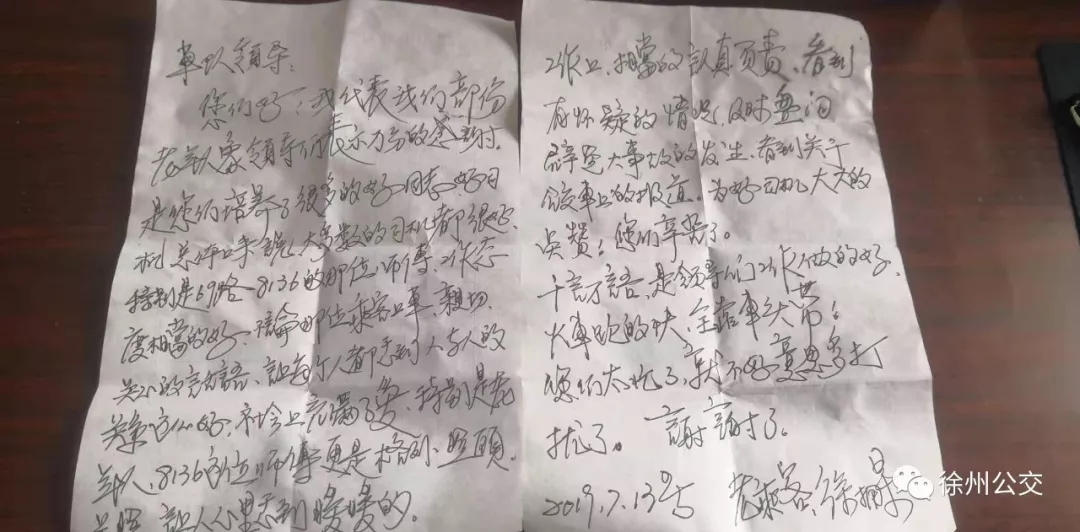 車队领导:
您们好!我代表我们部份
老年人象领导们表示万分的感谢!
是您们培养了很多的好同志、好司
机。总体来说,大多数的司机都很好,
特别是69路8136的那位师傅,工作态
度相当的好,论那位乘客上車,親切
的話語、让每个人都感到人与人的
关系这么好,充满了爱,特别是老
年人,8136的位师傅更是格外照顾,
让人心里感到暖暖的。
工作上,相當的認真负责,看到
有怀疑的情况,及时盘问
避免大事故的发生,看到关于
餃車上的报道,为好司机大大的
点赞!您们辛苦了。
千言万語,是领导们工作做的好,
火車跑的快,全靠車头带!
您们太忙了,我不好意思多打
扰了。 謝謝了。
2019.7.13号 老乘客,徐
徐州公交